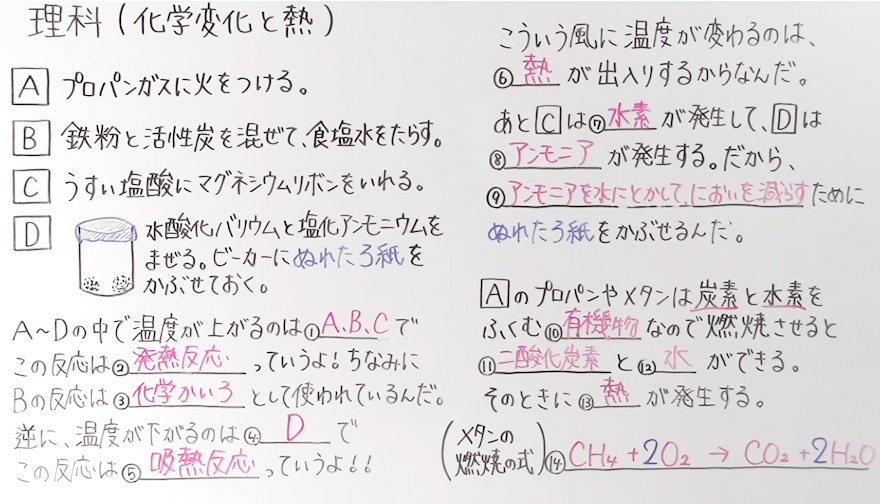 理科(化学変化と熱)
A プロパンガスに火をつける。
B 鉄粉と活性炭を混ぜて、食塩水をたらす。
C うすい塩酸にマグネシウムリボンをいれる。
D 水酸化バリウムと塩化アンモニウムを
まぜる。ビーカーにぬれたろ紙を
かぶせておく。
A~Dの中で温度が上がるのは①A、B、Cで
この反応は②発熱反応っていうよ!ちなみに
Bの反応は③化学かいろとして使われているんだ。
逆に、温度が下がるのは④Dで
この反応は⑤吸熱反応っていうよ!!
こういう風に温度が変わるのは、
⑥熱が出入りするからなんだ。
あとCは⑦水素が発生して、Dは
⑧アンモニアが発生する。だから、
⑨アンモニアを水にとかして、においを減らすために
ぬれたろ紙をかぶせるんだ。
Aのプロパンやメタンは炭素と水素を
ふくむ⑩有機物なので燃焼させると
⑪二酸化炭素と⑫水ができる。
そのときに⑬熱が発生する。
(メタンの
燃焼の式)⑭CH₄+2O₂→CO₂+2H₂O